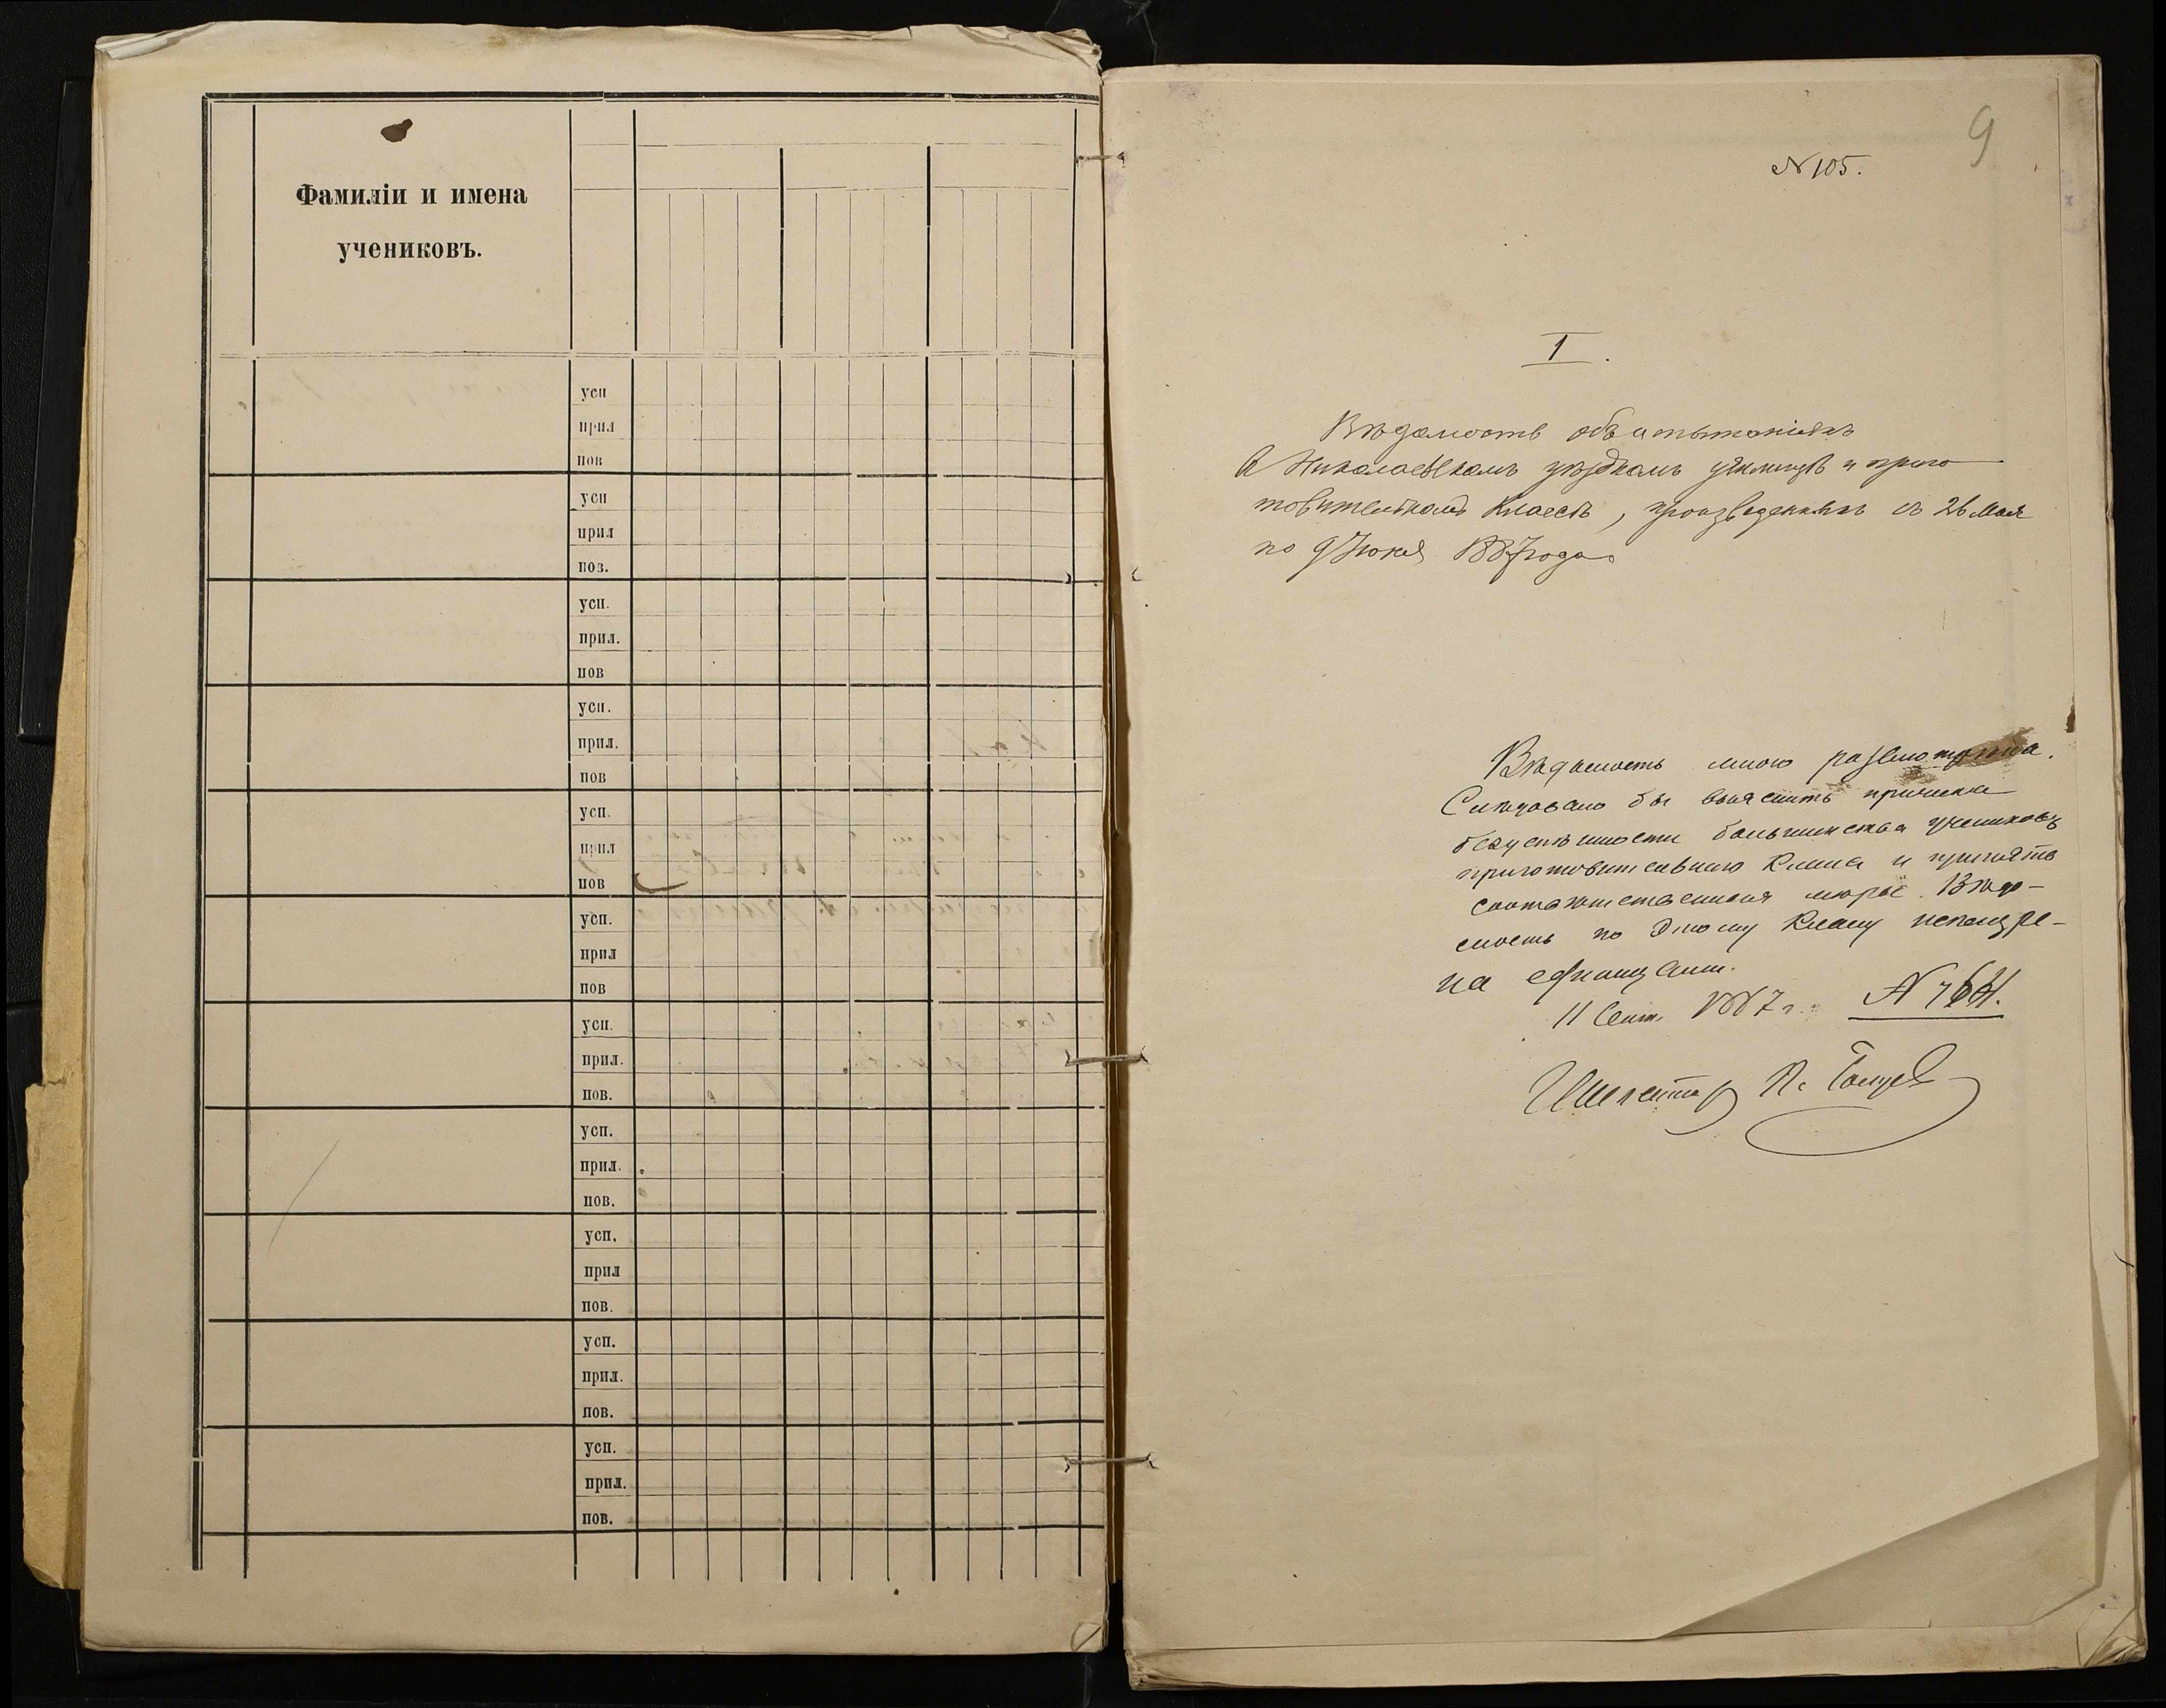 Фамиліи и имена
учениковъ.
усп
прил
пов
усп
прил
поз.
усп.
прил.
пов
усп.
прил.
пов
усп.
прил
пов
усп.
прил
пов
усп.
прил.
пов.
усп.
прил.
пов.
усп.
прил
пов.
усп.
прил.
пов.
усп.
прил.
пов.
9
№ 105.
I.
Вѣдомость объ испытаніяхъ
в Николаевскомъ уѣздномъ училищѣ и приго
товительномъ классѣ, произведенныхъ съ 26 Мая
по 9 Іюня 1887 года
Вѣдомость мною разсмотрѣна.
Слѣдовало бы выяснить причины
безуспѣшности большинства учениковъ
приготовительнаго класса и принять
соотвѣтственныя мѣры. Вѣдо-
мость по этому классу испещре-
на единицами.
11 Сент. 1887 г. № 764.
Инспекторъ П.